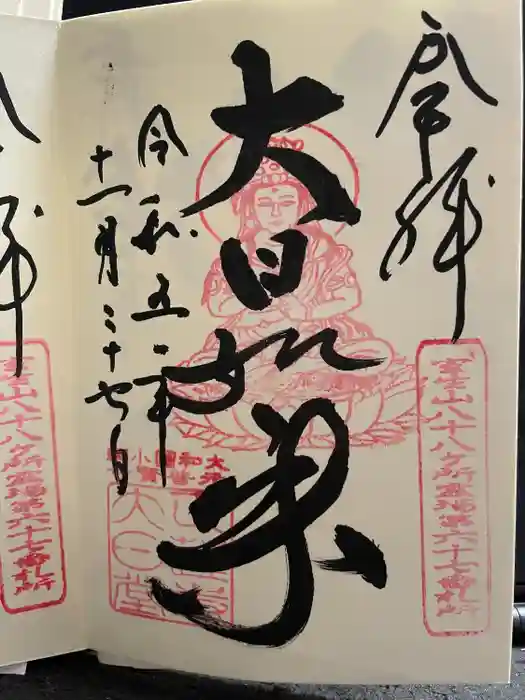 奉拝
山八十八ヶ所霊場第六十七番札所
大日如来
大日堂
令和五年
十一月二十七日
山八十八ヶ所霊場第六十七番札所